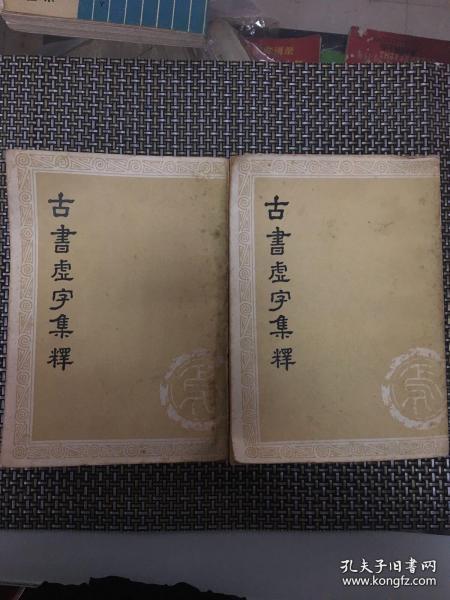 古書虛字集釋
古書虛字集釋
孔夫子旧書网
www.kongfz.com